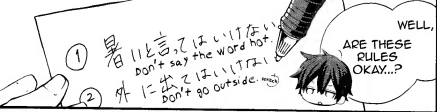 ① 暑いと言ってはいけない
Don't say the word hot
② 外に出てはいけない
Don't go outside.
WELL,
ARE THESE
RULES
OKAY...?